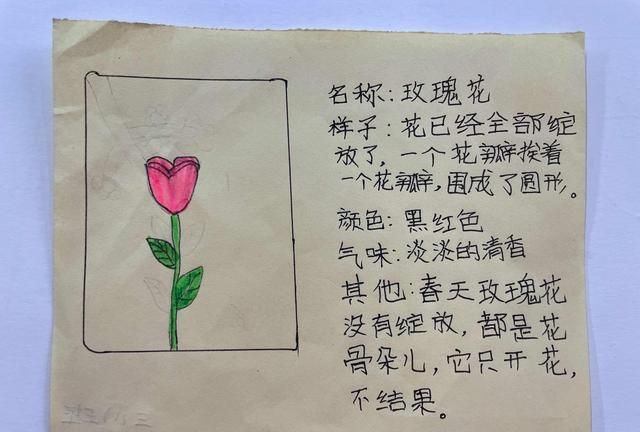 名称:玫瑰花
样子:花已经全部绽
放了,一个花瓣挨着
一个花瓣,围成了圆形。
颜色:黑红色
气味:淡淡的清香
其他:春天玫瑰花
没有绽放,都是花
骨朵儿,它只开花,
不结果。